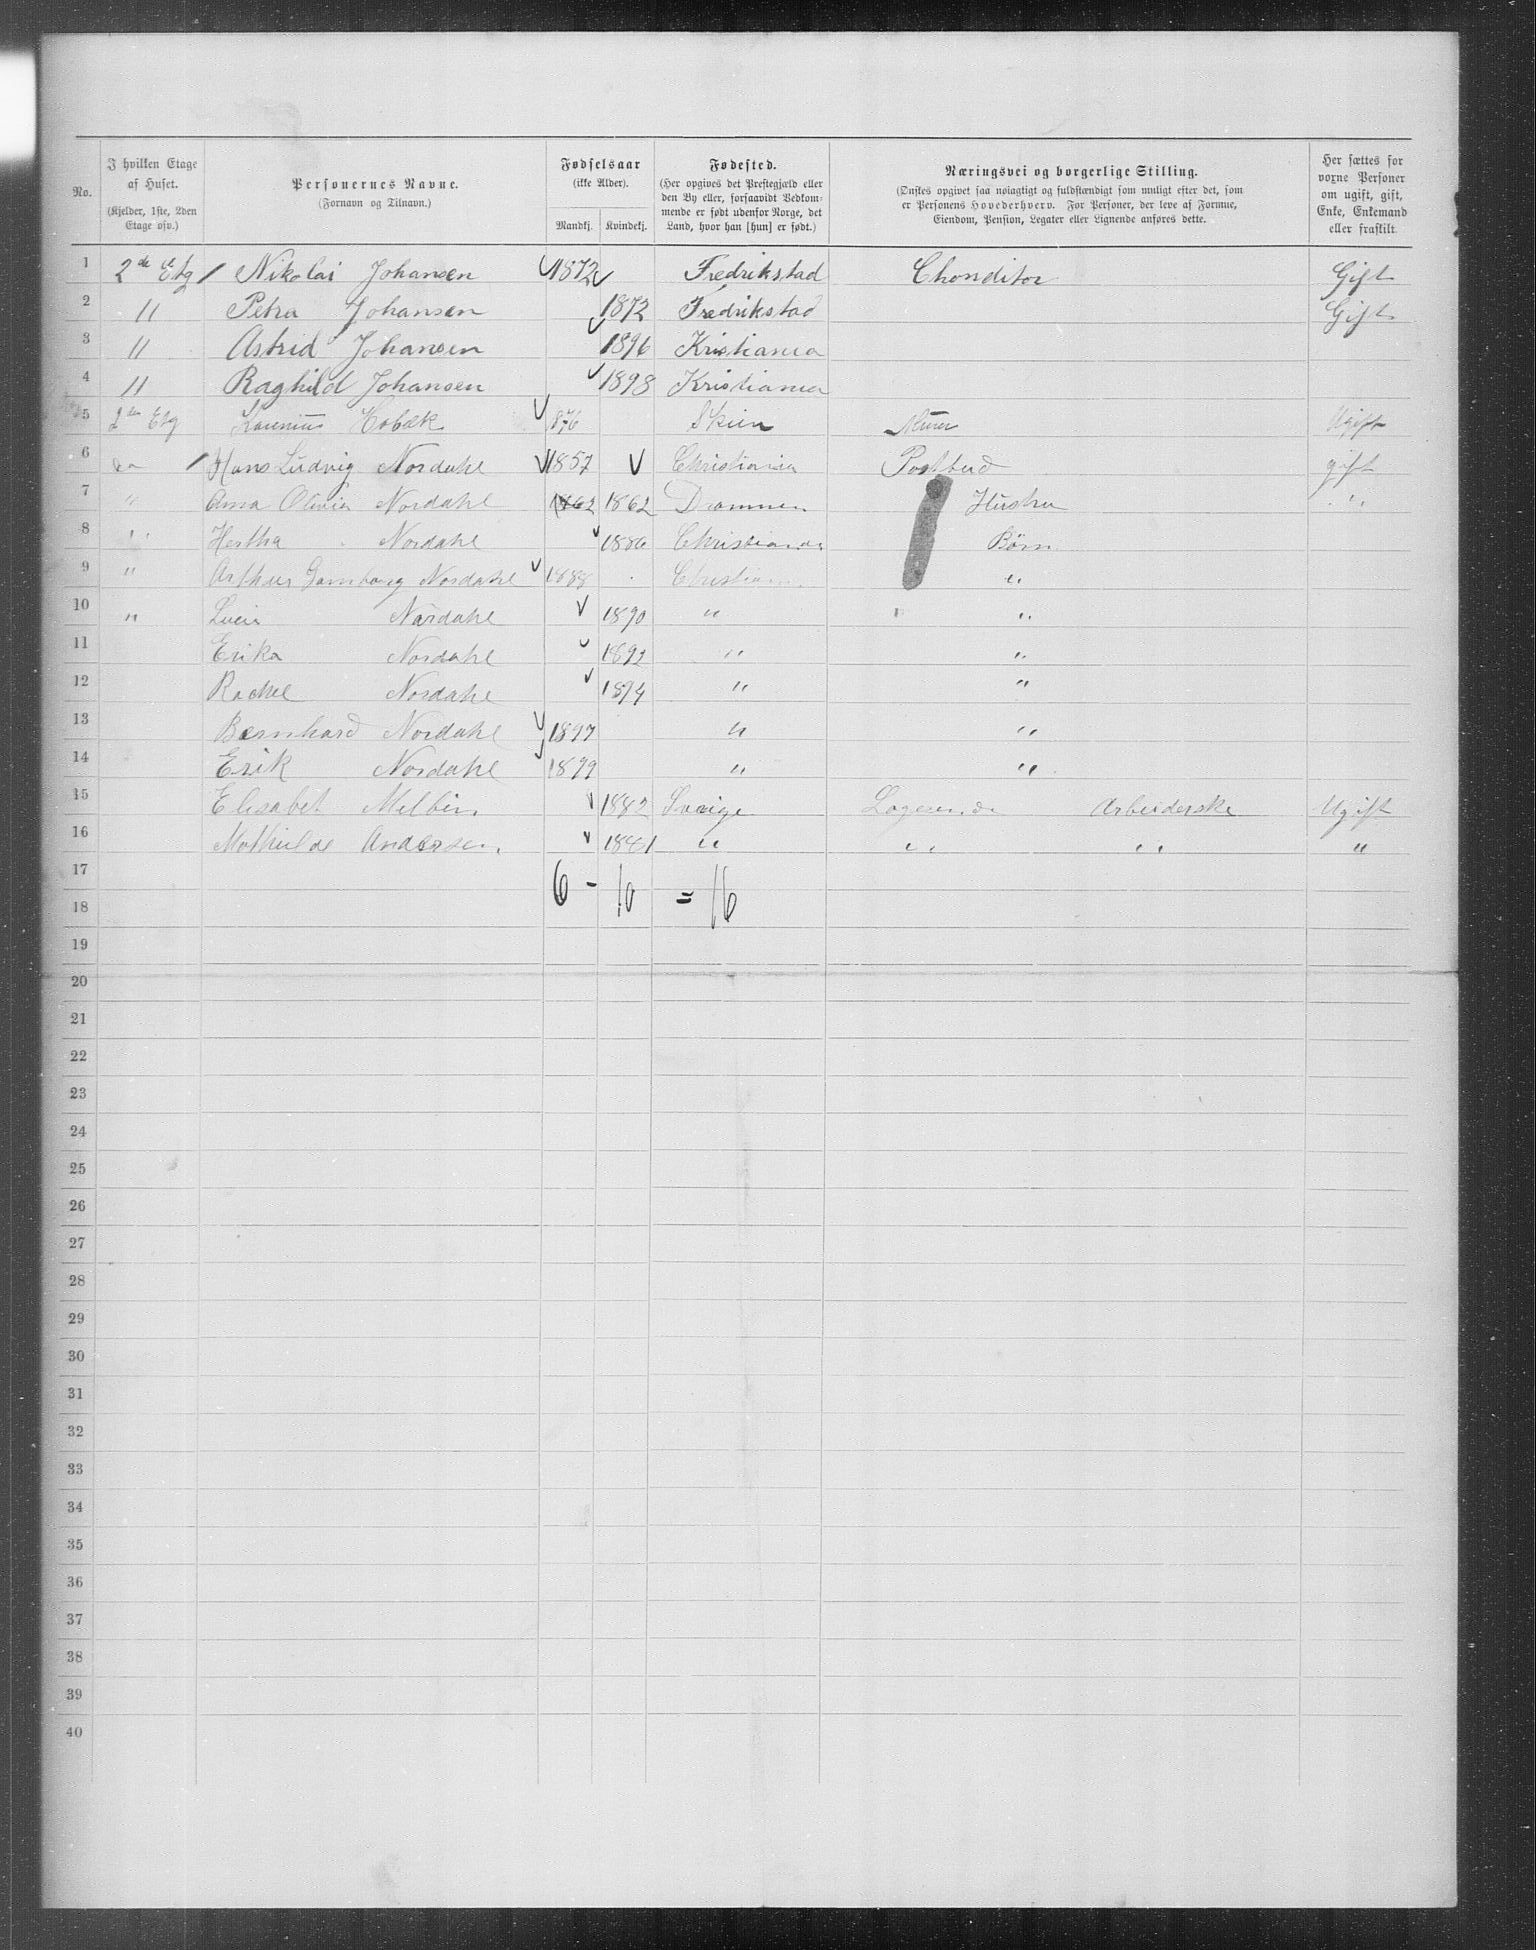 No.
I hvilken Etage af Huset. (Kjelder, 1ste, 2den Etage osv.)
Personernes Navne. (Fornavn og Tilnavn.)
Fødselsaar (ikke Alder). Mandkj. Kvindekj.
Fødested. (Her opgives det Prestegjæld eller den By eller, forsaavidt Vedkommende er født udenfor Norge, det Land, hvor han [hun] er født.)
Næringsvei og borgerlige Stilling. (Ønskes opgivet saa nøiagtigt og fuldstændigt som muligt efter det, som er Personens Hovederhverv. For Personer, der leve af Formue, Eiendom, Pension, Legater eller Lignende anføres dette.)
Her sættes for voxne Personer om ugift, gift, Enke, Enkemand eller fraskilt.
1 2de Etg / Nikolai Johansen 1872 Fredrikstad Chonditor Gift
2 " Petra Johansen 1872 Fredrikstad Gift
3 " Astrid Johansen 1896 Kristiania
4 " Raghild Johansen 1898 Kristiania
5 2den Etg 876 Skien Murer Ugift
6 / Hans Ludvig Nordahl 1857 Christiania Postbud gift
7 " Anna Olivia Nordahl 1862 1862 Drammen Hustru "
8 " Hertha Nordahl 1886 Christiania Børn
9 " Arthur Nordahl 1888 Christiania "
10 " Nordahl 1890 " "
11 Erika Nordahl 1892 " "
12 Rachel Nordahl 1894 " "
13 Bernhard Nordahl 1897 " "
14 Erik Nordahl 1899 " "
15 Elisabet Melbin 1882 Sverige Logerende Arbeiderske Ugift
16 Mathilde Andersen 1881 " " " "
17
6 - 10 = 16
18
19
20
21
22
23
24
25
26
27
28
29
30
31
32
33
34
35
36
37
38
39
40